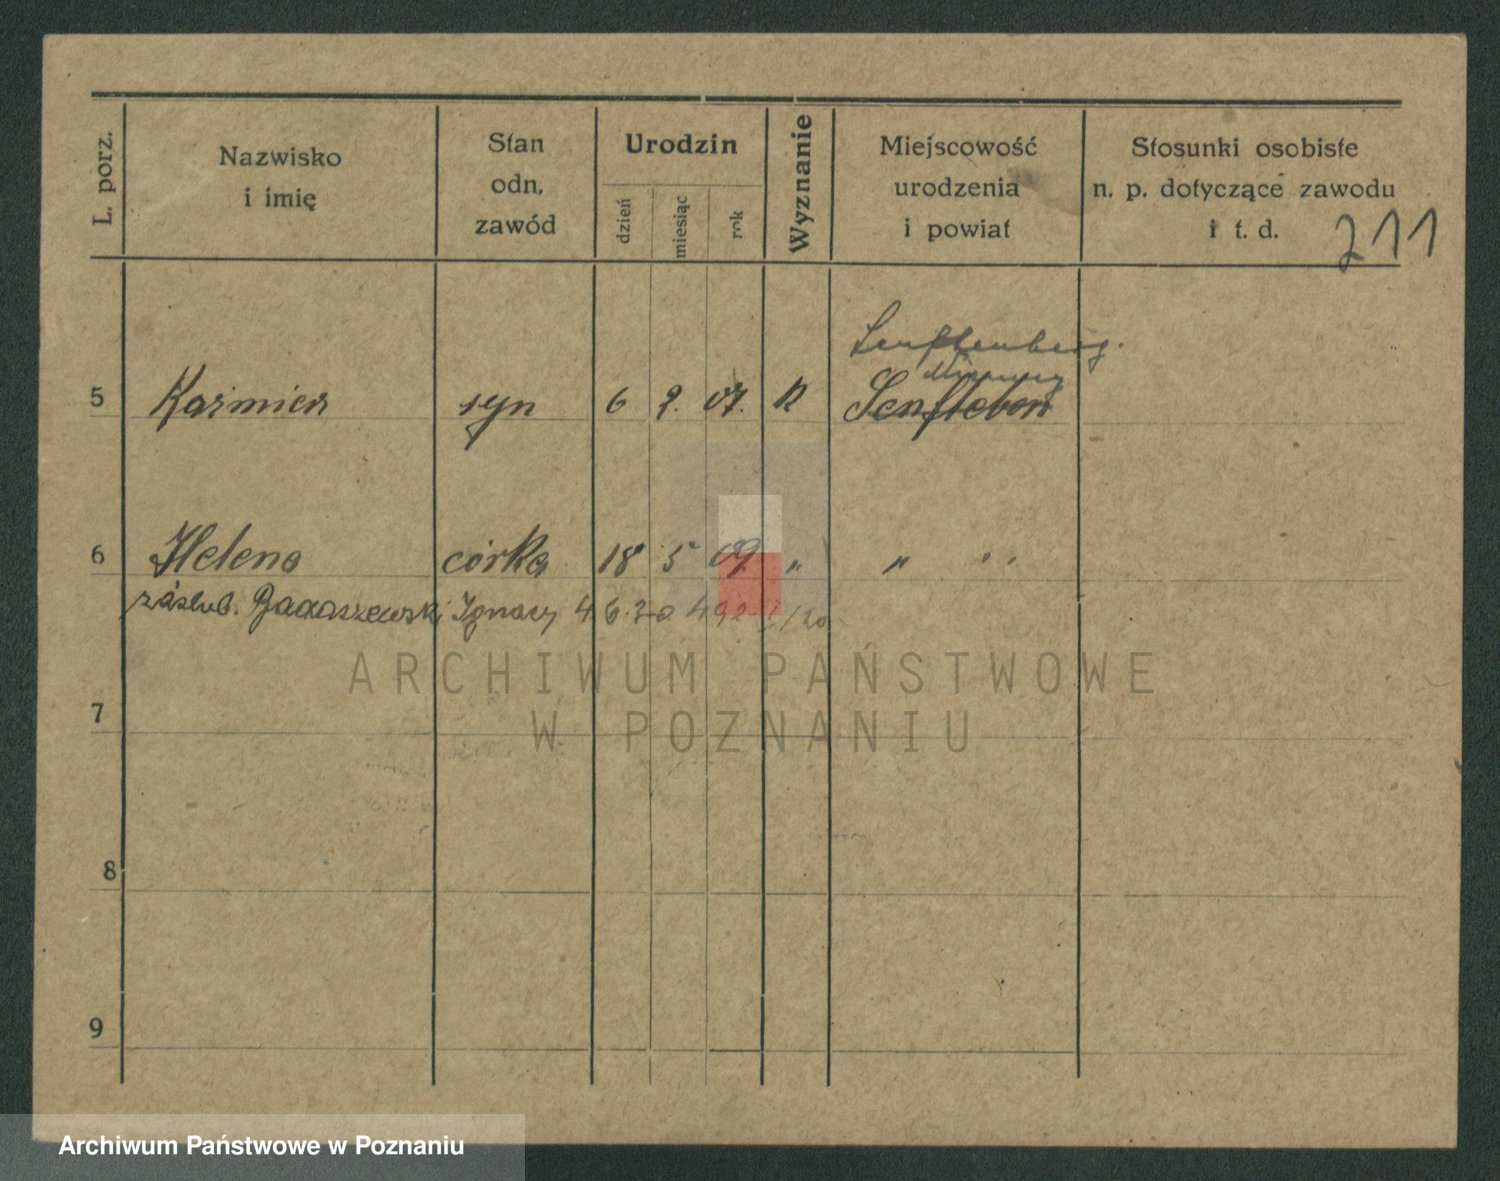 L. porz.
Nazwisko
i imię
Stan
odn.
zawód
Urodzin
dzień
miesiąc
rok
Wyznanie
Miejscowość
urodzenia
i powiat
Stosunki osobiste
n. p. dotyczące zawodu
i t. d.
211
Senftenberg.
5 Kaźmierz syn 6 2. 07. R Senfteben
6 Helena córka 18 5 09 " " " "
záslub. Ignacy 4.6.30
ARCHIWUM PAŃSTWOWE
W POZNANIU
7
8
9
Archiwum Państwowe w Poznaniu